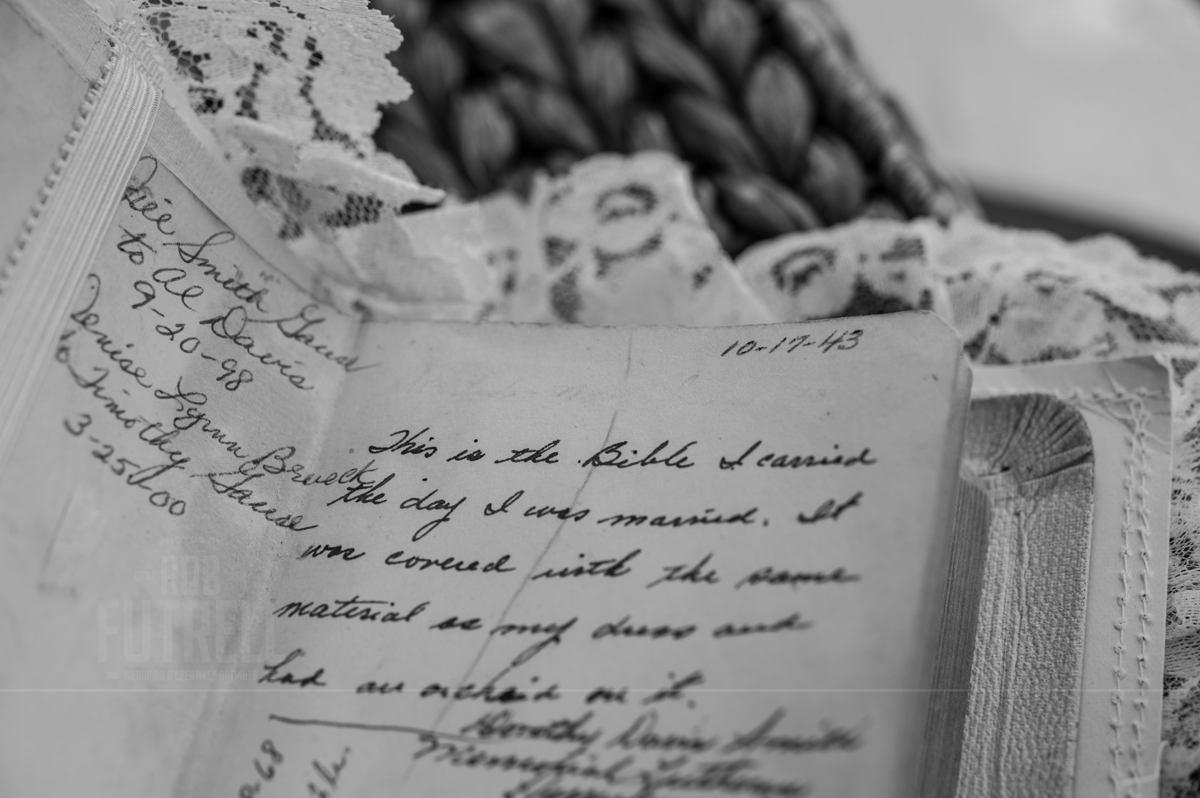 Smith
to Al Davis
9-20-98
Denise Lynn
to Timothy Gause
3-25-00
10-17-43
This is the Bible I carried
the day I was married. It
was covered with the same
material as my dress and
had an orchid on it.
Dorothy Davis Smith
Memorial Lutheran
68
ROB
FUTRELL